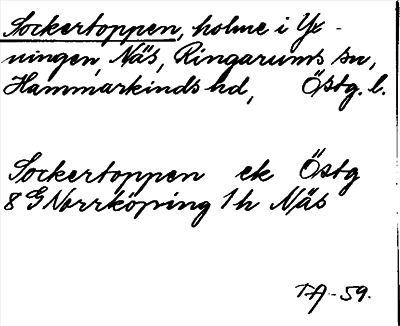 Sockertoppen, holme i Yx-
ningen, Näs, Ringarums sn,
Hammarkinds hd, Östg. l.
Sockertoppen ek Östg
8 G Norrköping 1h Näs
T.A-59.